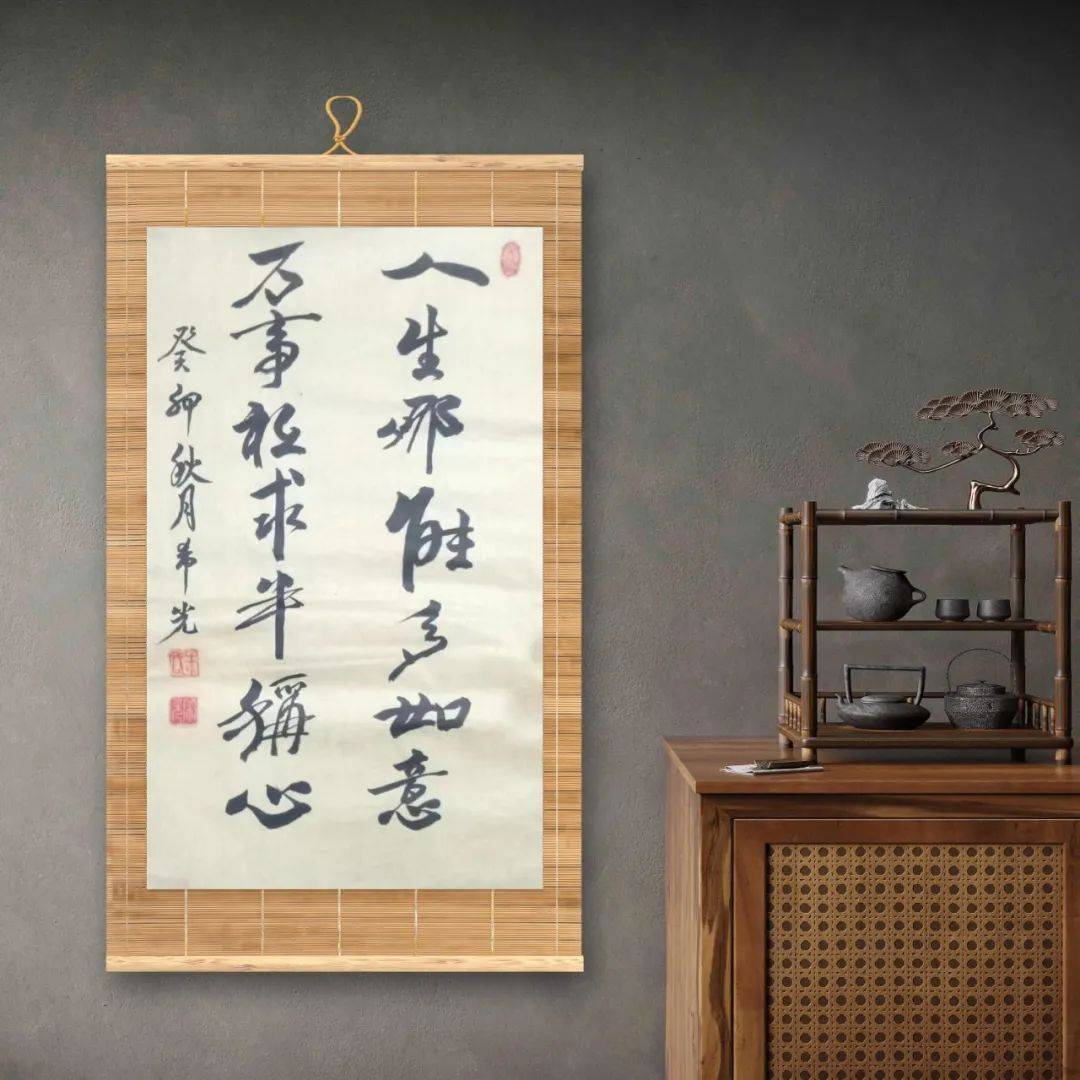 人生哪能多如意
万事祗求半稱心
癸卯秋月希光